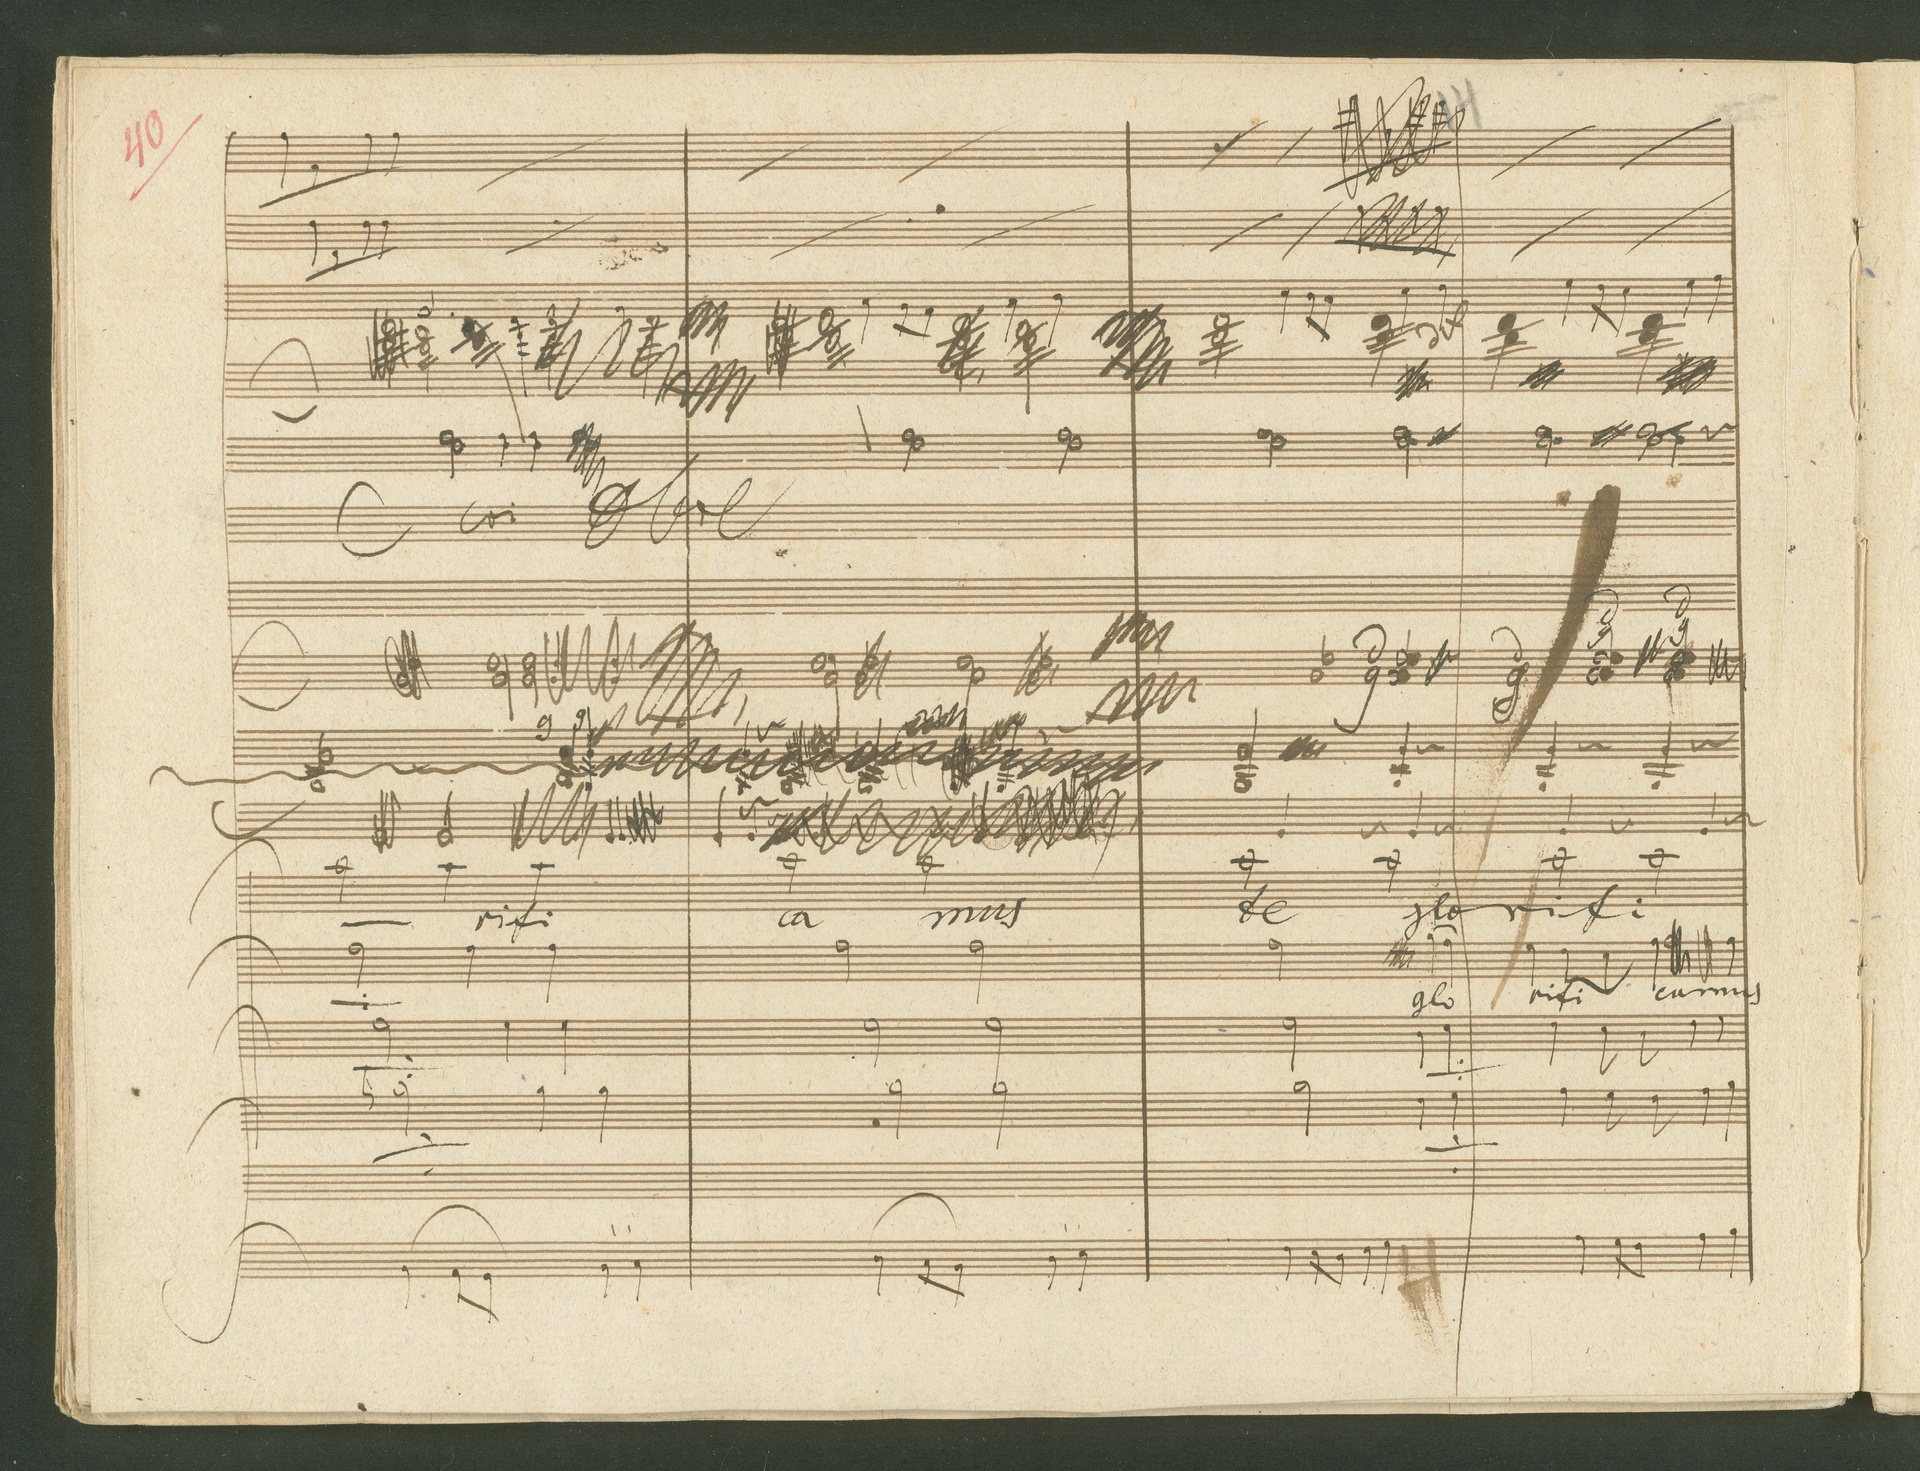 40
44
Coi Oboe
rifi ca mus te glo rifi
glo rifi camus